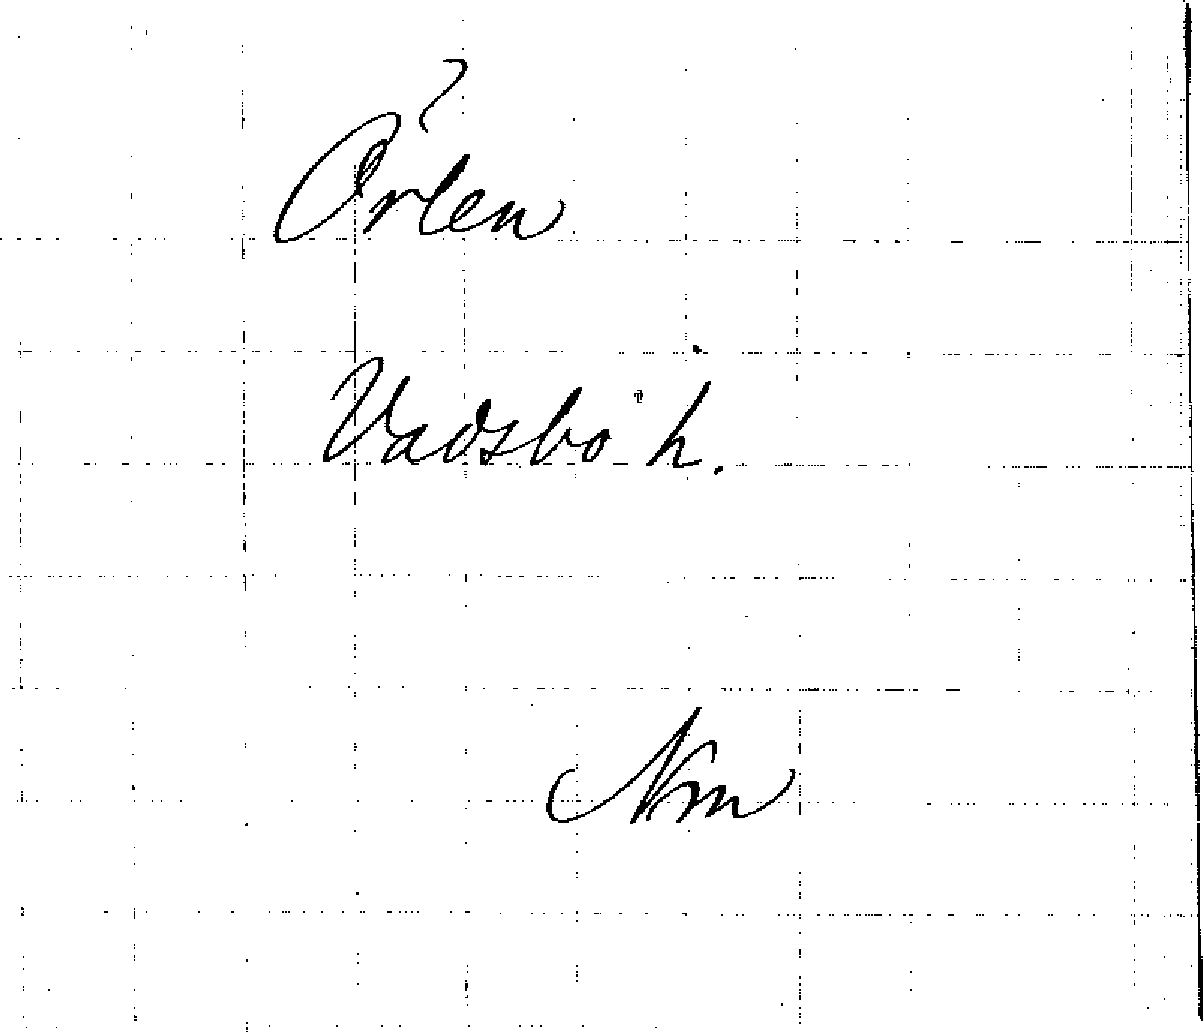 Örlen
Vadsbo h.
Nm